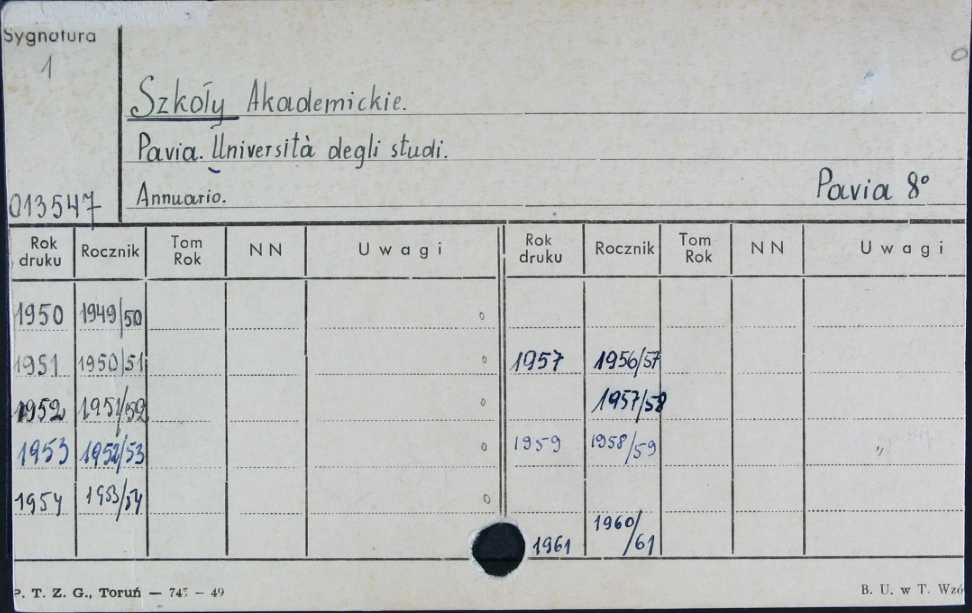 Sygnatura
1
Szkoły Akademickie.
Pavia. Università degli studi.
Annuario. Pavia 8°
013547
Rok druku Rocznik Tom Rok NN Uwagi Rok druku Rocznik Tom Rok NN Uwagi
1950 1949/50
1951 1950/51 1957 1956/57
1952 1951/52 1957/58
1953 1952/53 1959 1958/59 "
1954 1953/54
1961 1960/61
P. T. Z. G., Toruń — 747 — 49 B. U. w T. Wzó